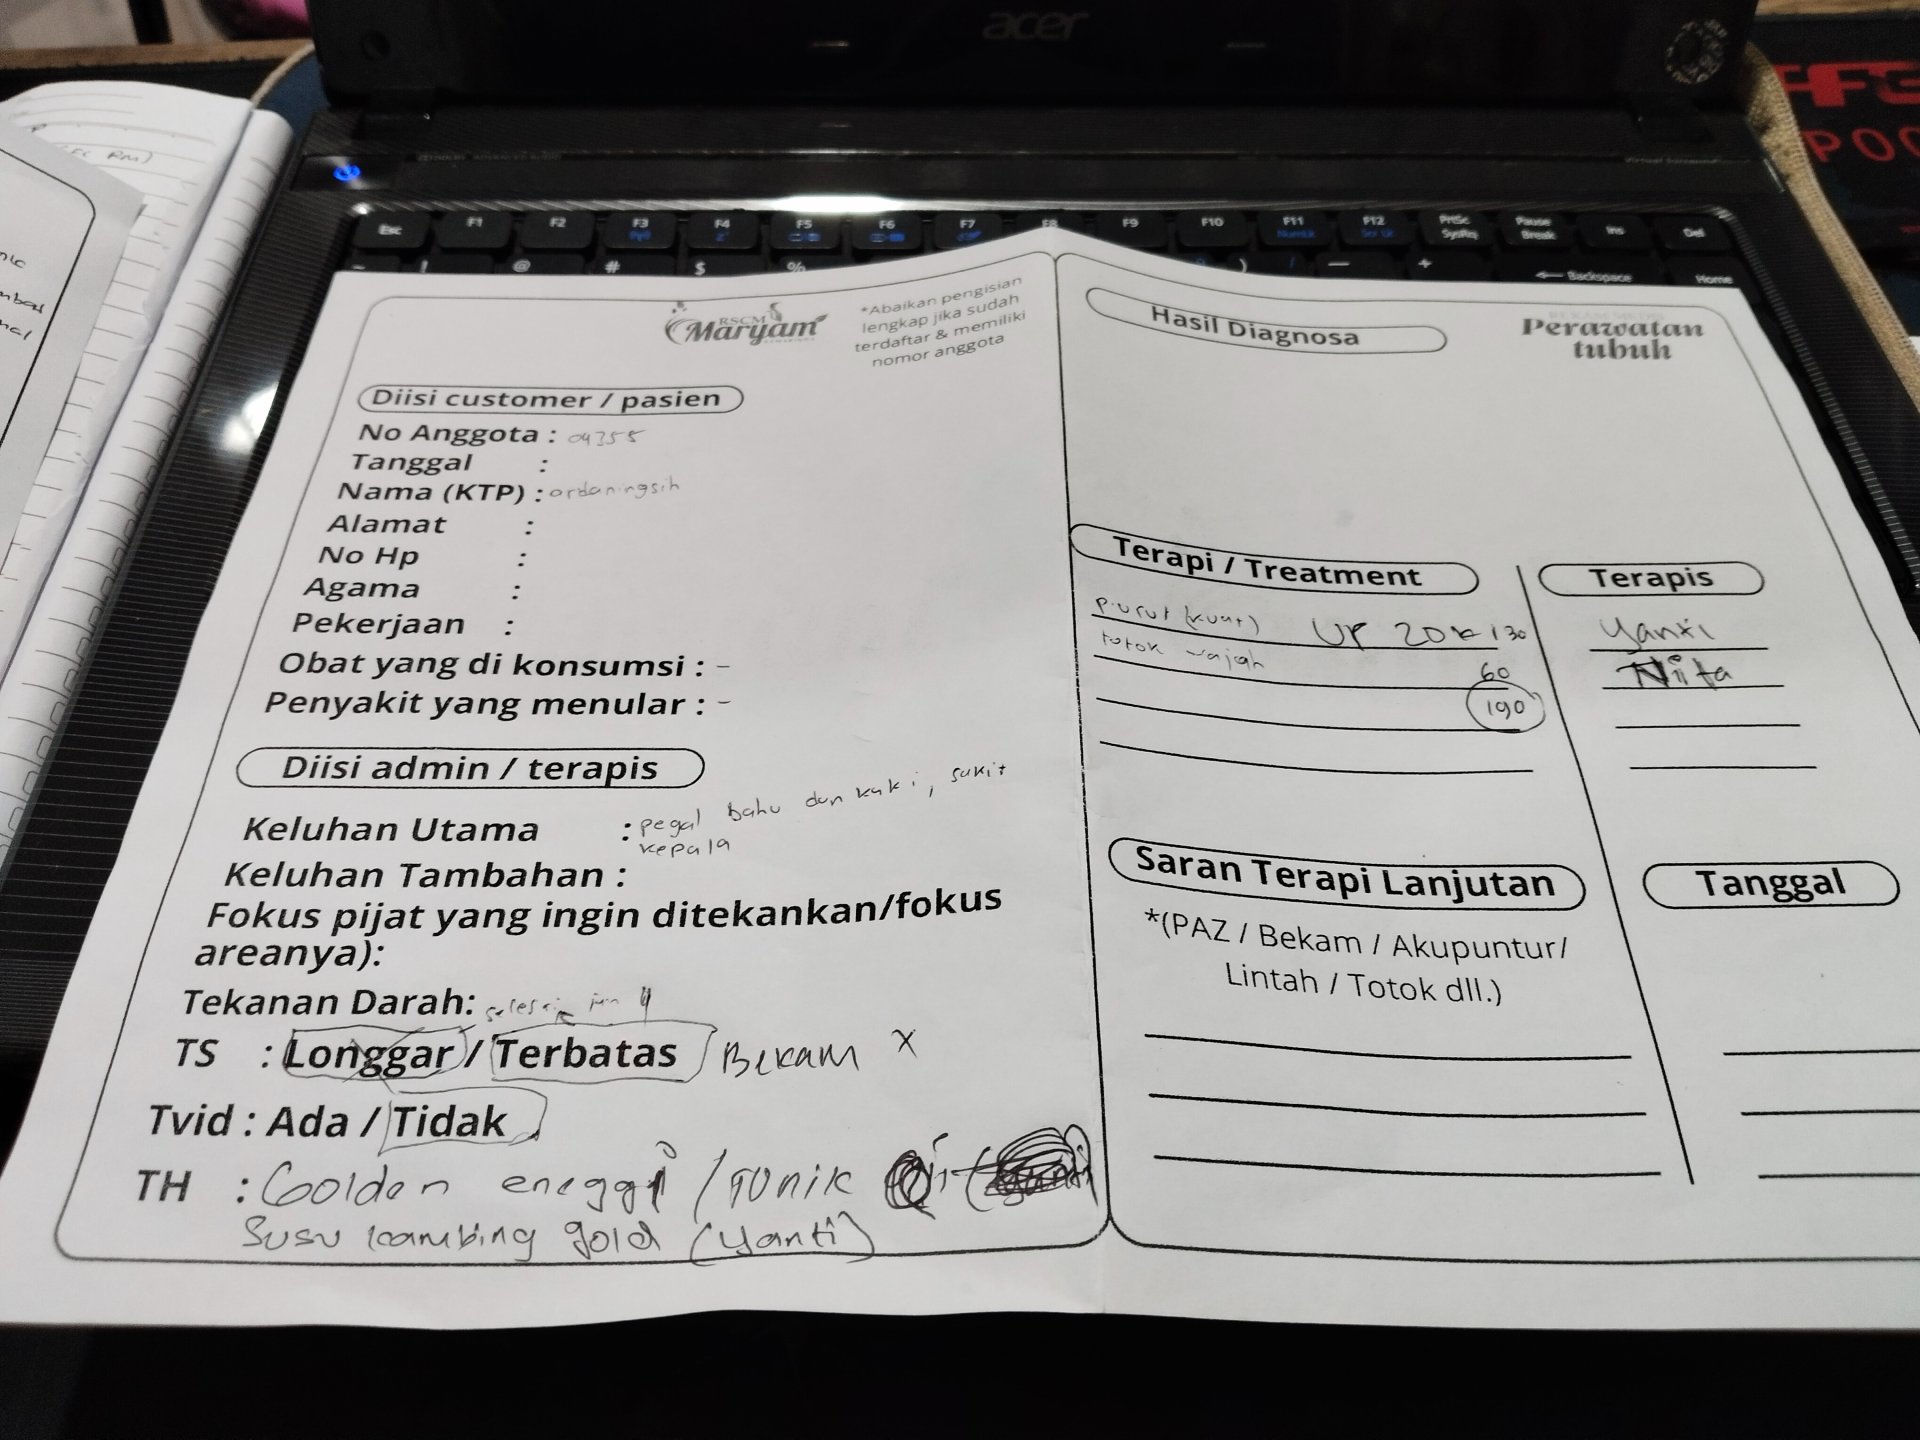 acer
Esc F1 F2 F3 F4 F5 F6 F7 F8 F9 F10 F11 F12 PrtSc SysRq Pause Break Ins Del
! @ # $ % ) — + Backspace Home
RM)
POC
RSCM
Maryam
*Abaikan pengisian
lengkap jika sudah
terdaftar & memiliki
nomor anggota
Diisi customer / pasien
No Anggota : 04355
Tanggal :
Nama (KTP) : ordaningsih
Alamat :
No Hp :
Agama :
Pekerjaan :
Obat yang di konsumsi : -
Penyakit yang menular : -
Diisi admin / terapis
Keluhan Utama : pegal Bahu dan kaki, sakit
kepala
Keluhan Tambahan :
Fokus pijat yang ingin ditekankan/fokus
areanya):
Tekanan Darah: selesai jam 4
TS : Longgar / Terbatas / Bekam x
Tvid : Ada / Tidak
TH : Golden eneggi / Tonik
Susu kambing gold (yanti)
Hasil Diagnosa
Perawatan
tubuh
Terapi / Treatment
Terapis
purut (kuat) UP 20k 130 Yanti
totok wajah 60 Nita
190
Saran Terapi Lanjutan
Tanggal
*(PAZ / Bekam / Akupuntur/
Lintah / Totok dll.)